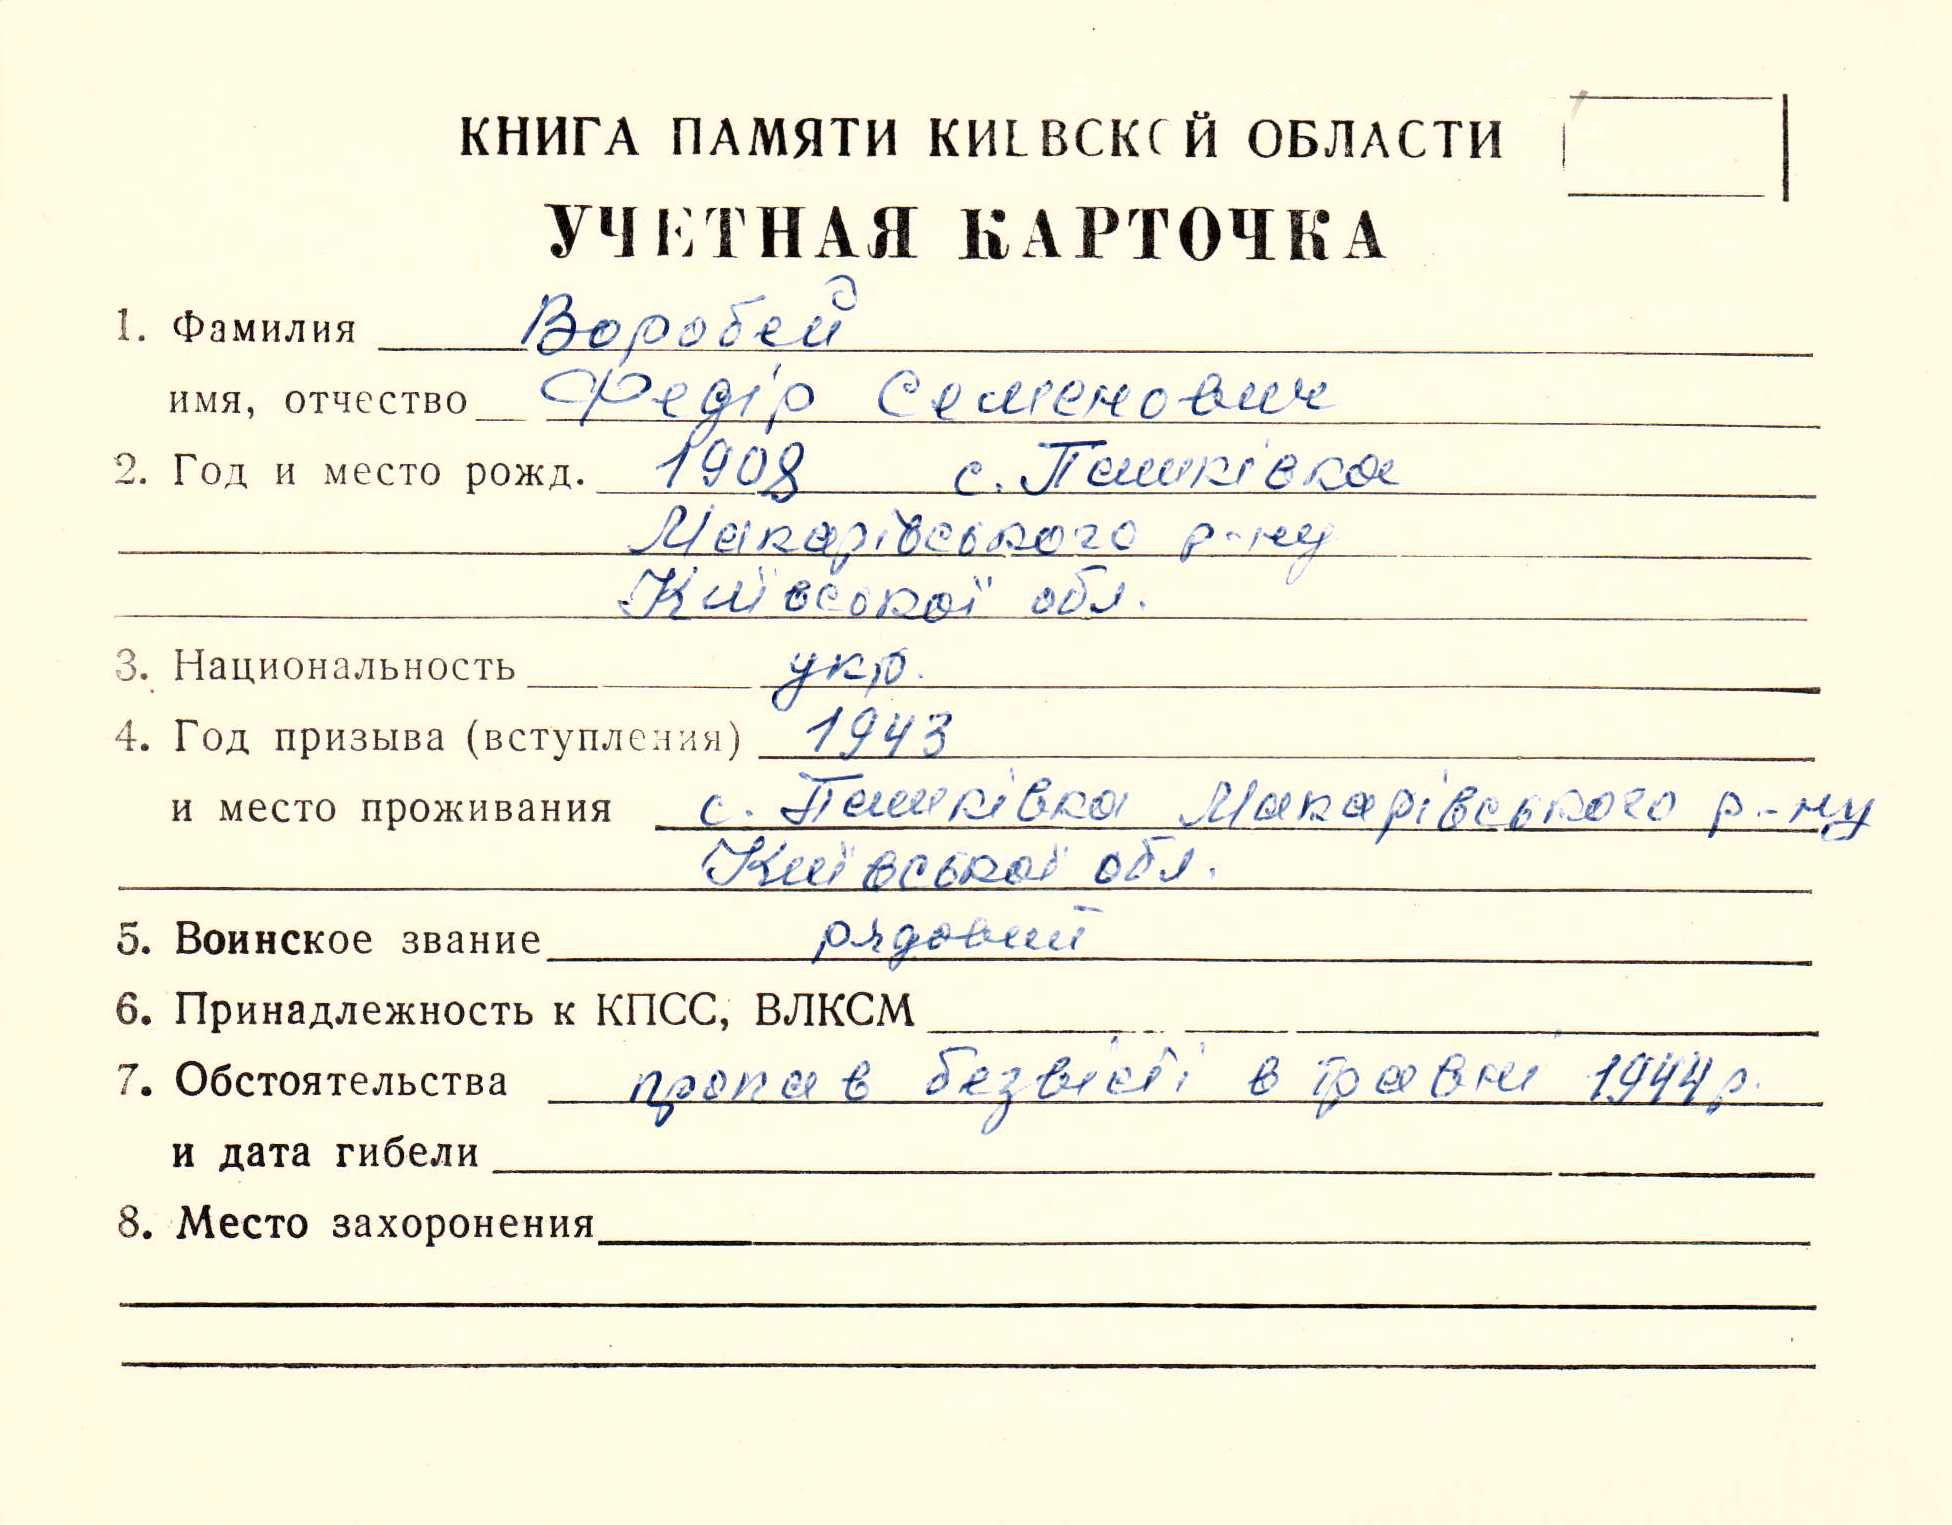 КНИГА ПАМЯТИ КИЕВСКОЙ ОБЛАСТИ
УЧЕТНАЯ КАРТОЧКА
1. Фамилия Воробей
имя, отчество Федір Семенович
2. Год и место рожд. 1908 с. Пашківка
Макарівського р-ну
Київської обл.
3. Национальность укр.
4. Год призыва (вступления) 1943
и место проживания с. Пашківка Макарівського р-ну
Київської обл.
5. Воинское звание рядовий
6. Принадлежность к КПСС, ВЛКСМ
7. Обстоятельства пропав безвісті в травні 1944 р.
и дата гибели
8. Место захоронения